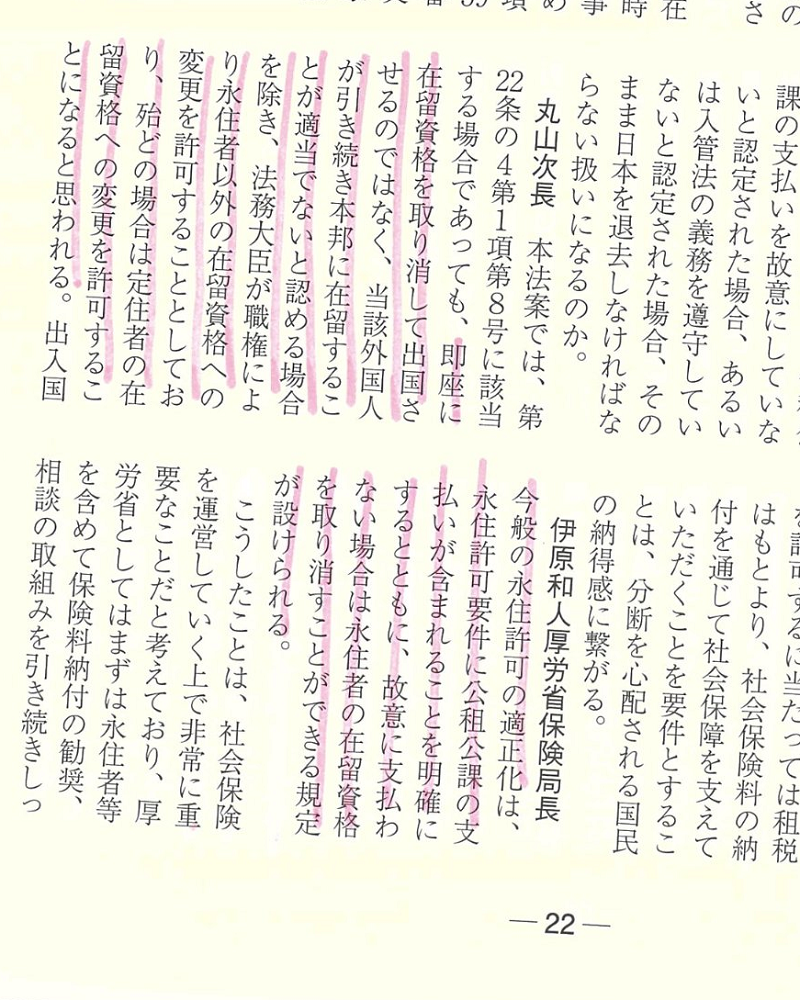 の
さ
在
時
事
め
項
課の支払いを故意にしていな
いと認定された場合、あるい
は入管法の義務を遵守してい
ないと認定された場合、その
まま日本を退去しなければな
らない扱いになるのか。
丸山次長　本法案では、第
22条の4第1項第8号に該当
する場合であっても、即座に
在留資格を取り消して出国さ
せるのではなく、当該外国人
が引き続き本邦に在留するこ
とが適当でないと認める場合
を除き、法務大臣が職権によ
り永住者以外の在留資格への
変更を許可することとしてお
り、殆どの場合は定住者の在
留資格への変更を許可するこ
とになると思われる。出入国
を許可するに当たっては租税
はもとより、社会保険料の納
付を通じて社会保障を支えて
いただくことを要件とするこ
とは、分断を心配される国民
の納得感に繋がる。
伊原和人厚労省保険局長
今般の永住許可の適正化は、
永住許可要件に公租公課の支
払いが含まれることを明確に
するとともに、故意に支払わ
ない場合は永住者の在留資格
を取り消すことができる規定
が設けられる。
こうしたことは、社会保険
を運営していく上で非常に重
要なことだと考えており、厚
労省としてはまずは永住者等
を含めて保険料納付の勧奨、
相談の取組みを引き続きしっ
— 22 —